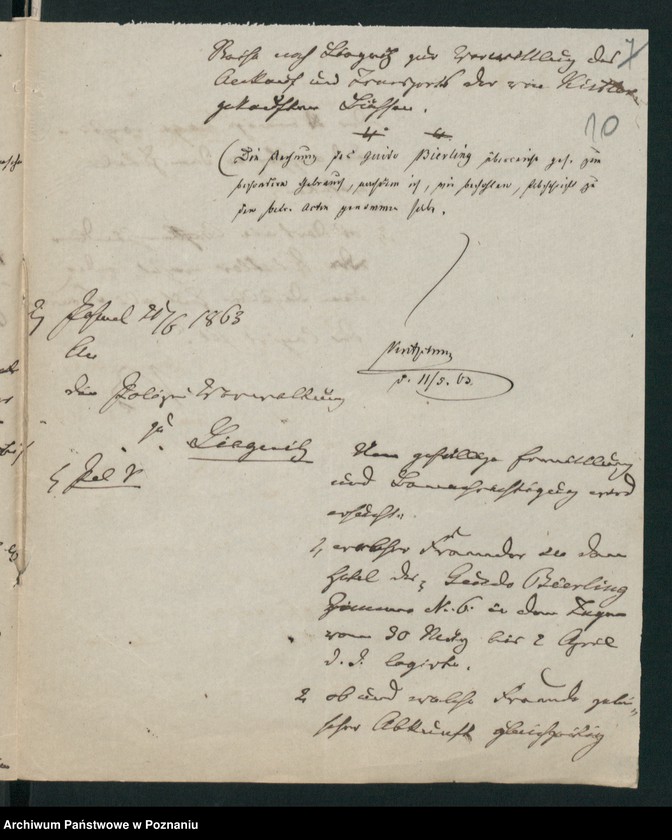 7
10
Reise nach Liegnitz zur Vermittlung des
Ankauf und Transports der von
gekauften Büchsen.
(Die Rechnung des Guido Bierling überreiche geh. zum
besondern Gebrauch, nachdem ich, wie befohlen, Abschrift zu
den betr. Acten genommen habe.
d. 11/5. 63.
2) Posen 21/6 1863
An
die Polizei Verwaltung
zu Liegnitz
Um gefällige Ermittlung
und Benachrichtigung wird
ersucht.
1, welcher Fremder in dem
Hotel des Guido Bierling
Zimmer N. 6. in den Tagen
vom 30 März bis 2 April
d. J. logirte.
2, ob und welche Fremde polni-
scher Abkunft gleichzeitig
Archiwum Państwowe w Poznaniu